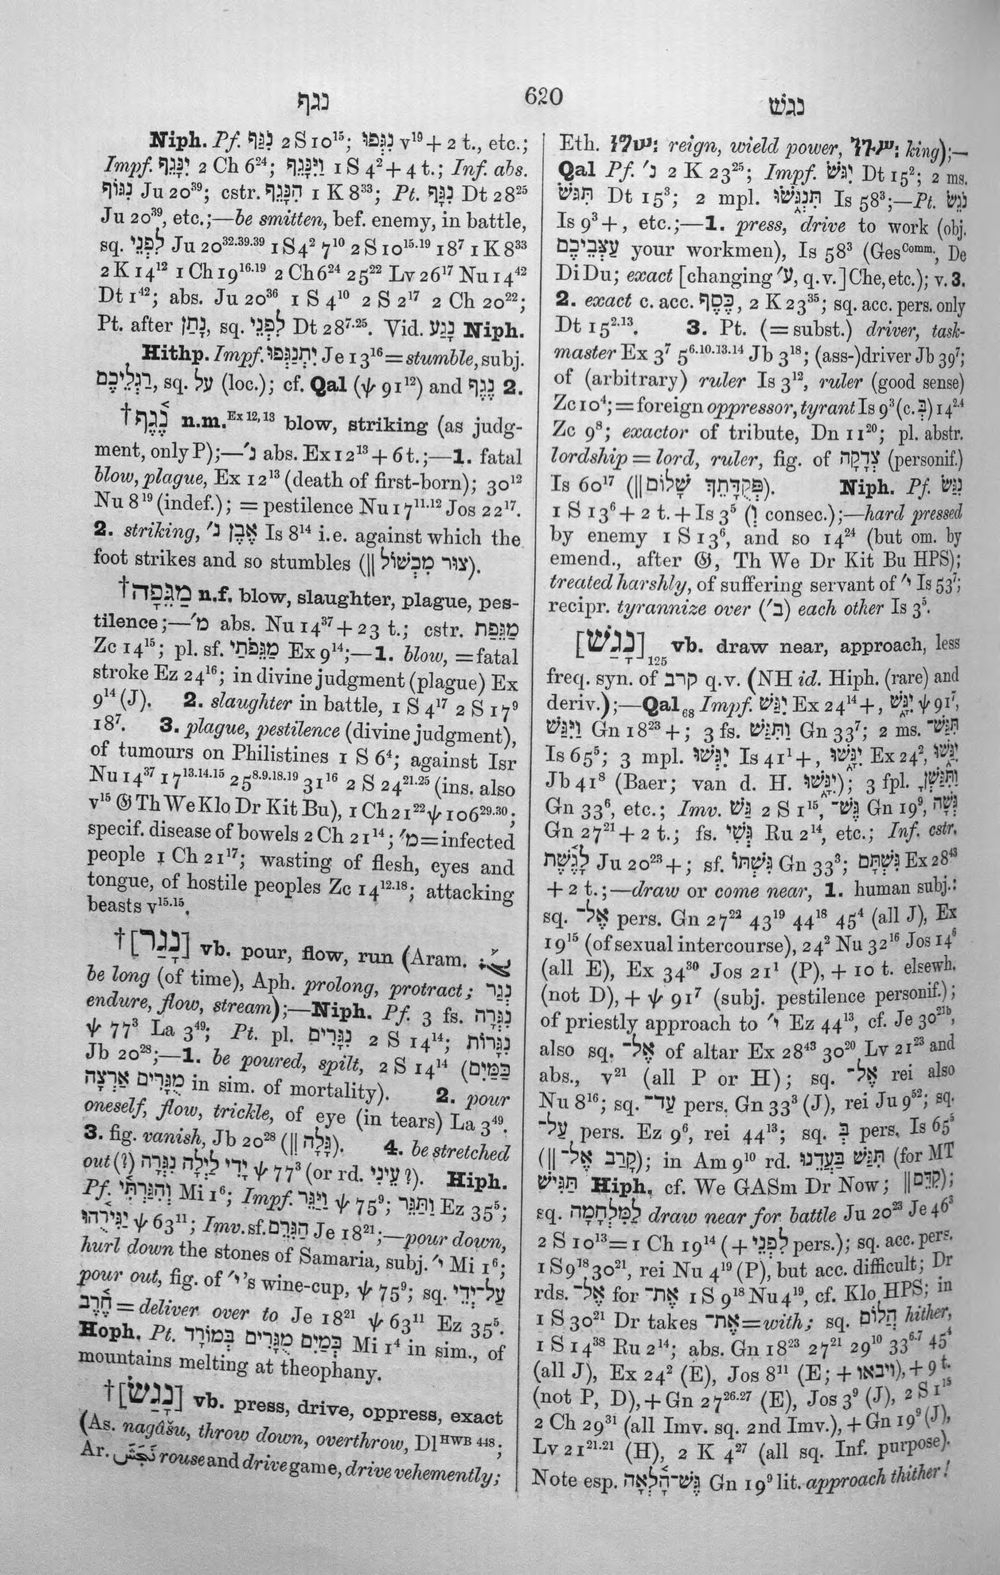 נגף
620
נגשׁ
Niph. Pf. נִגַּף 2 S 10¹⁵; נִגְּפוּ v¹⁹ + 2 t., etc.;
Impf. יִנָּגֵף 2 Ch 6²⁴; וַיִּנָּגֶף 1 S 4² + 4 t.; Inf. abs.
נִגּוֹף Ju 20³⁹; cstr. הִנָּגֵף 1 K 8³³; Pt. נִגָּף Dt 28²⁵
Ju 20³⁹, etc.;—be smitten, bef. enemy, in battle,
sq. לִפְנֵי Ju 20³²·³⁹·³⁹ 1 S 4² 7¹⁰ 2 S 10¹⁵·¹⁹ 18⁷ 1 K 8³³
2 K 14¹² 1 Ch 19¹⁶·¹⁹ 2 Ch 6²⁴ 25²² Lv 26¹⁷ Nu 14⁴²
Dt 1⁴²; abs. Ju 20³⁶ 1 S 4¹⁰ 2 S 2¹⁷ 2 Ch 20²²;
Pt. after נָתַן, sq. לִפְנֵי Dt 28⁷·²⁵. Vid. נָגַע Niph.
Hithp. Impf. יִתְנַגְּפוּ Je 13¹⁶ = stumble, subj.
רַגְלֵיכֶם, sq. עַל (loc.); cf. Qal (ψ 91¹²) and נֶגֶף 2.
† נֶגֶף n.m. Ex 12, 13 blow, striking (as judg-
ment, only P);—נ׳ abs. Ex 12¹³ + 6 t.;—1. fatal
blow, plague, Ex 12¹³ (death of first-born); 30¹²
Nu 8¹⁹ (indef.); = pestilence Nu 17¹¹·¹² Jos 22¹⁷.
2. striking, אֶבֶן נ׳ Is 8¹⁴ i.e. against which the
foot strikes and so stumbles (|| צוּר מִכְשׁוֹל).
† מַגֵּפָה n.f. blow, slaughter, plague, pes-
tilence;—מ׳ abs. Nu 14³⁷ + 23 t.; cstr. מַגֵּפַת
Zc 14¹⁵; pl. sf. מַגֵּפֹתַי Ex 9¹⁴;—1. blow, = fatal
stroke Ez 24¹⁶; in divine judgment (plague) Ex
9¹⁴ (J). 2. slaughter in battle, 1 S 4¹⁷ 2 S 17⁹
18⁷. 3. plague, pestilence (divine judgment),
of tumours on Philistines 1 S 6⁴; against Isr
Nu 14³⁷ 17¹³·¹⁴·¹⁵ 25⁸·⁹·¹⁸·¹⁹ 31¹⁶ 2 S 24²¹·²⁵ (ins. also
v¹⁵ 𝔊 Th We Klo Dr Kit Bu), 1 Ch 21²² ψ 106²⁹·³⁰;
specif. disease of bowels 2 Ch 21¹⁴; מ׳ = infected
people 1 Ch 21¹⁷; wasting of flesh, eyes and
tongue, of hostile peoples Zc 14¹²·¹⁸; attacking
beasts v¹⁵·¹⁵.
† [נָגַר] vb. pour, flow, run (Aram.
be long (of time), Aph. prolong, protract; נְגַר
endure, flow, stream);—Niph. Pf. 3 fs. נִגְּרָה
ψ 77³ La 3⁴⁹; Pt. pl. נִגָּרִים 2 S 14¹⁴; נִגָּרוֹת
Jb 20²⁸;—1. be poured, spilt, 2 S 14¹⁴ (כַּמַּיִם
מֻגָּרִים אַרְצָה in sim. of mortality). 2. pour
oneself, flow, trickle, of eye (in tears) La 3⁴⁹.
3. fig. vanish, Jb 20²⁸ (|| גָּלָה). 4. be stretched
out (?) יָדִי לַיְלָה נִגְּרָה ψ 77³ (or rd. עֵינַי ?). Hiph.
Pf. וְהִגַּרְתִּי Mi 1⁶; Impf. וַיַּגֵּר ψ 75⁹; וַתַּגֵּר Ez 35⁵;
יַגִּירֻהוּ ψ 63¹¹; Imv. sf. הַגִּרֵם Je 18²¹;—pour down,
hurl down the stones of Samaria, subj. י׳ Mi 1⁶;
pour out, fig. of י׳'s wine-cup, ψ 75⁹; sq. עַל־יְדֵי
חֶרֶב = deliver over to Je 18²¹ ψ 63¹¹ Ez 35⁵.
Hoph. Pt. כְּמַיִם מֻגָּרִים בְּמוֹרָד Mi 1⁴ in sim., of
mountains melting at theophany.
† [נָגַשׂ] vb. press, drive, oppress, exact
(As. nagâšu, throw down, overthrow, Dl HWB 448;
Ar. نَجَشَ rouse and drive game, drive vehemently;
Eth. ነግሠ: reign, wield power, ንጉሥ: king);—
Qal Pf. נ׳ 2 K 23³⁵; Impf. יִגֹּשׂ Dt 15²; 2 ms.
תִּגֹּשׂ Dt 15³; 2 mpl. תִּנְגֹּשׂוּ Is 58³;—Pt. נֹגֵשׂ
Is 9³ +, etc.;—1. press, drive to work (obj.
עַצְּבֵיכֶם your workmen), Is 58³ (Ges Comm, De
Di Du; exact [changing ע׳, q.v.] Che, etc.); v. 3.
2. exact c. acc. כֶּסֶף, 2 K 23³⁵; sq. acc. pers. only
Dt 15²·¹³. 3. Pt. (= subst.) driver, task-
master Ex 3⁷ 5⁶·¹⁰·¹³·¹⁴ Jb 3¹⁸; (ass-)driver Jb 39⁷;
of (arbitrary) ruler Is 3¹², ruler (good sense)
Zc 10⁴; = foreign oppressor, tyrant Is 9³ (c. בְּ) 14²·⁴
Zc 9⁸; exactor of tribute, Dn 11²⁰; pl. abstr.
lordship = lord, ruler, fig. of צְדָקָה (personif.)
Is 60¹⁷ (|| פְּקֻדָּתֵךְ שָׁלוֹם). Niph. Pf. נִגַּשׂ
1 S 13⁶ + 2 t. + Is 3⁵ (וְ consec.);—hard pressed
by enemy 1 S 13⁶, and so 14²⁴ (but om. by
emend., after 𝔊, Th We Dr Kit Bu HPS);
treated harshly, of suffering servant of י׳ Is 53⁷;
recipr. tyrannize over (בְ׳) each other Is 3⁵.
[נָגַשׁ]₁₂₅ vb. draw near, approach, less
freq. syn. of קרב q.v. (NH id. Hiph. (rare) and
deriv.);—Qal₆₈ Impf. יִגַּשׁ Ex 24¹⁴ +, יִגָּשׁ ψ 91⁷,
וַיִּגַּשׁ Gn 18²³ +; 3 fs. וַתִּגַּשׁ Gn 33⁷; 2 ms. תִּגַּשׁ־
Is 65⁵; 3 mpl. יִגְּשׁוּ Is 41¹ +, יִגָּשׁוּ Ex 24², יִגַּשׁוּ
Jb 41⁸ (Baer; van d. H. יִגָּשׁוּ); 3 fpl. וַתִּגַּשְׁןָ
Gn 33⁶, etc.; Imv. גַּשׁ 2 S 1¹⁵, גֶּשׁ־ Gn 19⁹, גְּשָׁה
Gn 27²¹ + 2 t.; fs. גְּשִׁי Ru 2¹⁴, etc.; Inf. cstr.
לָגֶשֶׁת Ju 20²³ +; sf. גִּשְׁתּוֹ Gn 33³; גִּשְׁתָּם Ex 28⁴³
+ 2 t.;—draw or come near, 1. human subj.:
sq. אֶל־ pers. Gn 27²² 43¹⁹ 44¹⁸ 45⁴ (all J), Ex
19¹⁵ (of sexual intercourse), 24² Nu 32¹⁶ Jos 14⁶
(all E), Ex 34³⁰ Jos 21¹ (P), + 10 t. elsewh.
(not D), + ψ 91⁷ (subj. pestilence personif.);
of priestly approach to י׳ Ez 44¹³, cf. Je 30²¹ᵇ,
also sq. אֶל־ of altar Ex 28⁴³ 30²⁰ Lv 21²³ and
abs., v²¹ (all P or H); sq. אֶל־ rei also
Nu 8¹⁹; sq. עַד־ pers. Gn 33³ (J), rei Ju 9⁵²; sq.
עַל־ pers. Ez 9⁶, rei 44¹³; sq. בְּ pers. Is 65⁵
(|| קָרַב אֶל־); in Am 9¹⁰ rd. תִּגַּשׁ בַּעֲדֵנוּ (for MT
תַּגִּישׁ Hiph. cf. We GASm Dr Now; || קדּם);
sq. לַמִּלְחָמָה draw near for battle Ju 20²³ Je 46³
2 S 10¹³ = 1 Ch 19¹⁴ (+ לִפְנֵי pers.); sq. acc. pers.
1 S 9¹⁸ 30²¹, rei Nu 4¹⁹ (P), but acc. difficult; Dr
rds. אֶל־ for אֶת־ 1 S 9¹⁸ Nu 4¹⁹, cf. Klo HPS; in
1 S 30²¹ Dr takes אֶת־ = with; sq. הֲלוֹם hither,
1 S 14³⁸ Ru 2¹⁴; abs. Gn 18²³ 27²¹ 29¹⁰ 33⁶·⁷ 45⁴
(all J), Ex 24² (E), Jos 8¹¹ (E; + ויבאו), + 9 t.
(not P, D), + Gn 27²⁶·²⁷ (E), Jos 3⁹ (J), 2 S 1¹⁵
2 Ch 29³¹ (all Imv. sq. 2nd Imv.), + Gn 19⁹ (J),
Lv 21²¹·²¹ (H), 2 K 4²⁷ (all sq. Inf. purpose).
Note esp. גֶּשׁ־הָלְאָה Gn 19⁹ lit. approach thither!